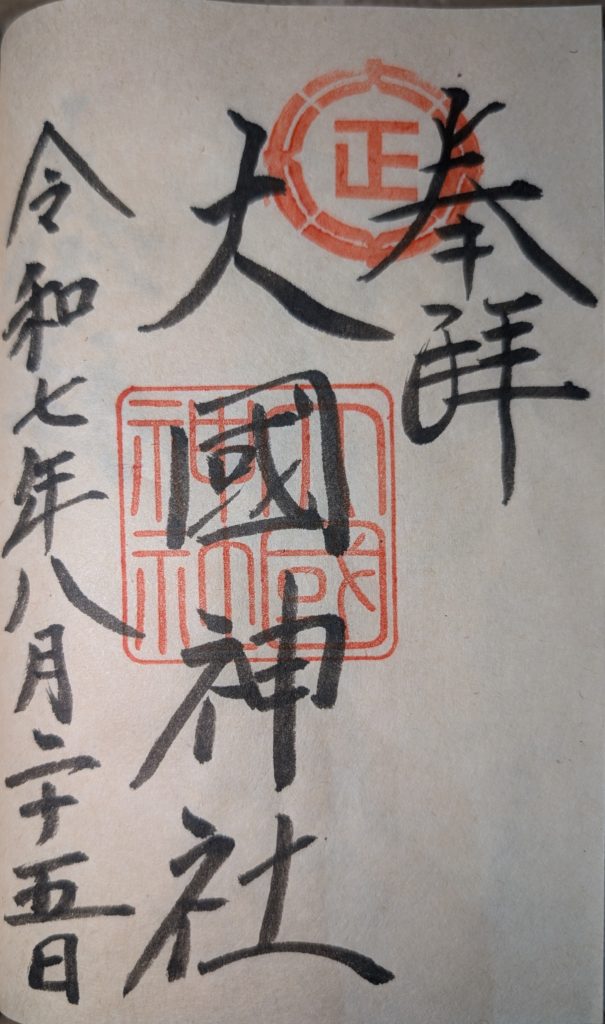 奉拜
正
大國神社
大國神社
令和七年八月二十五日